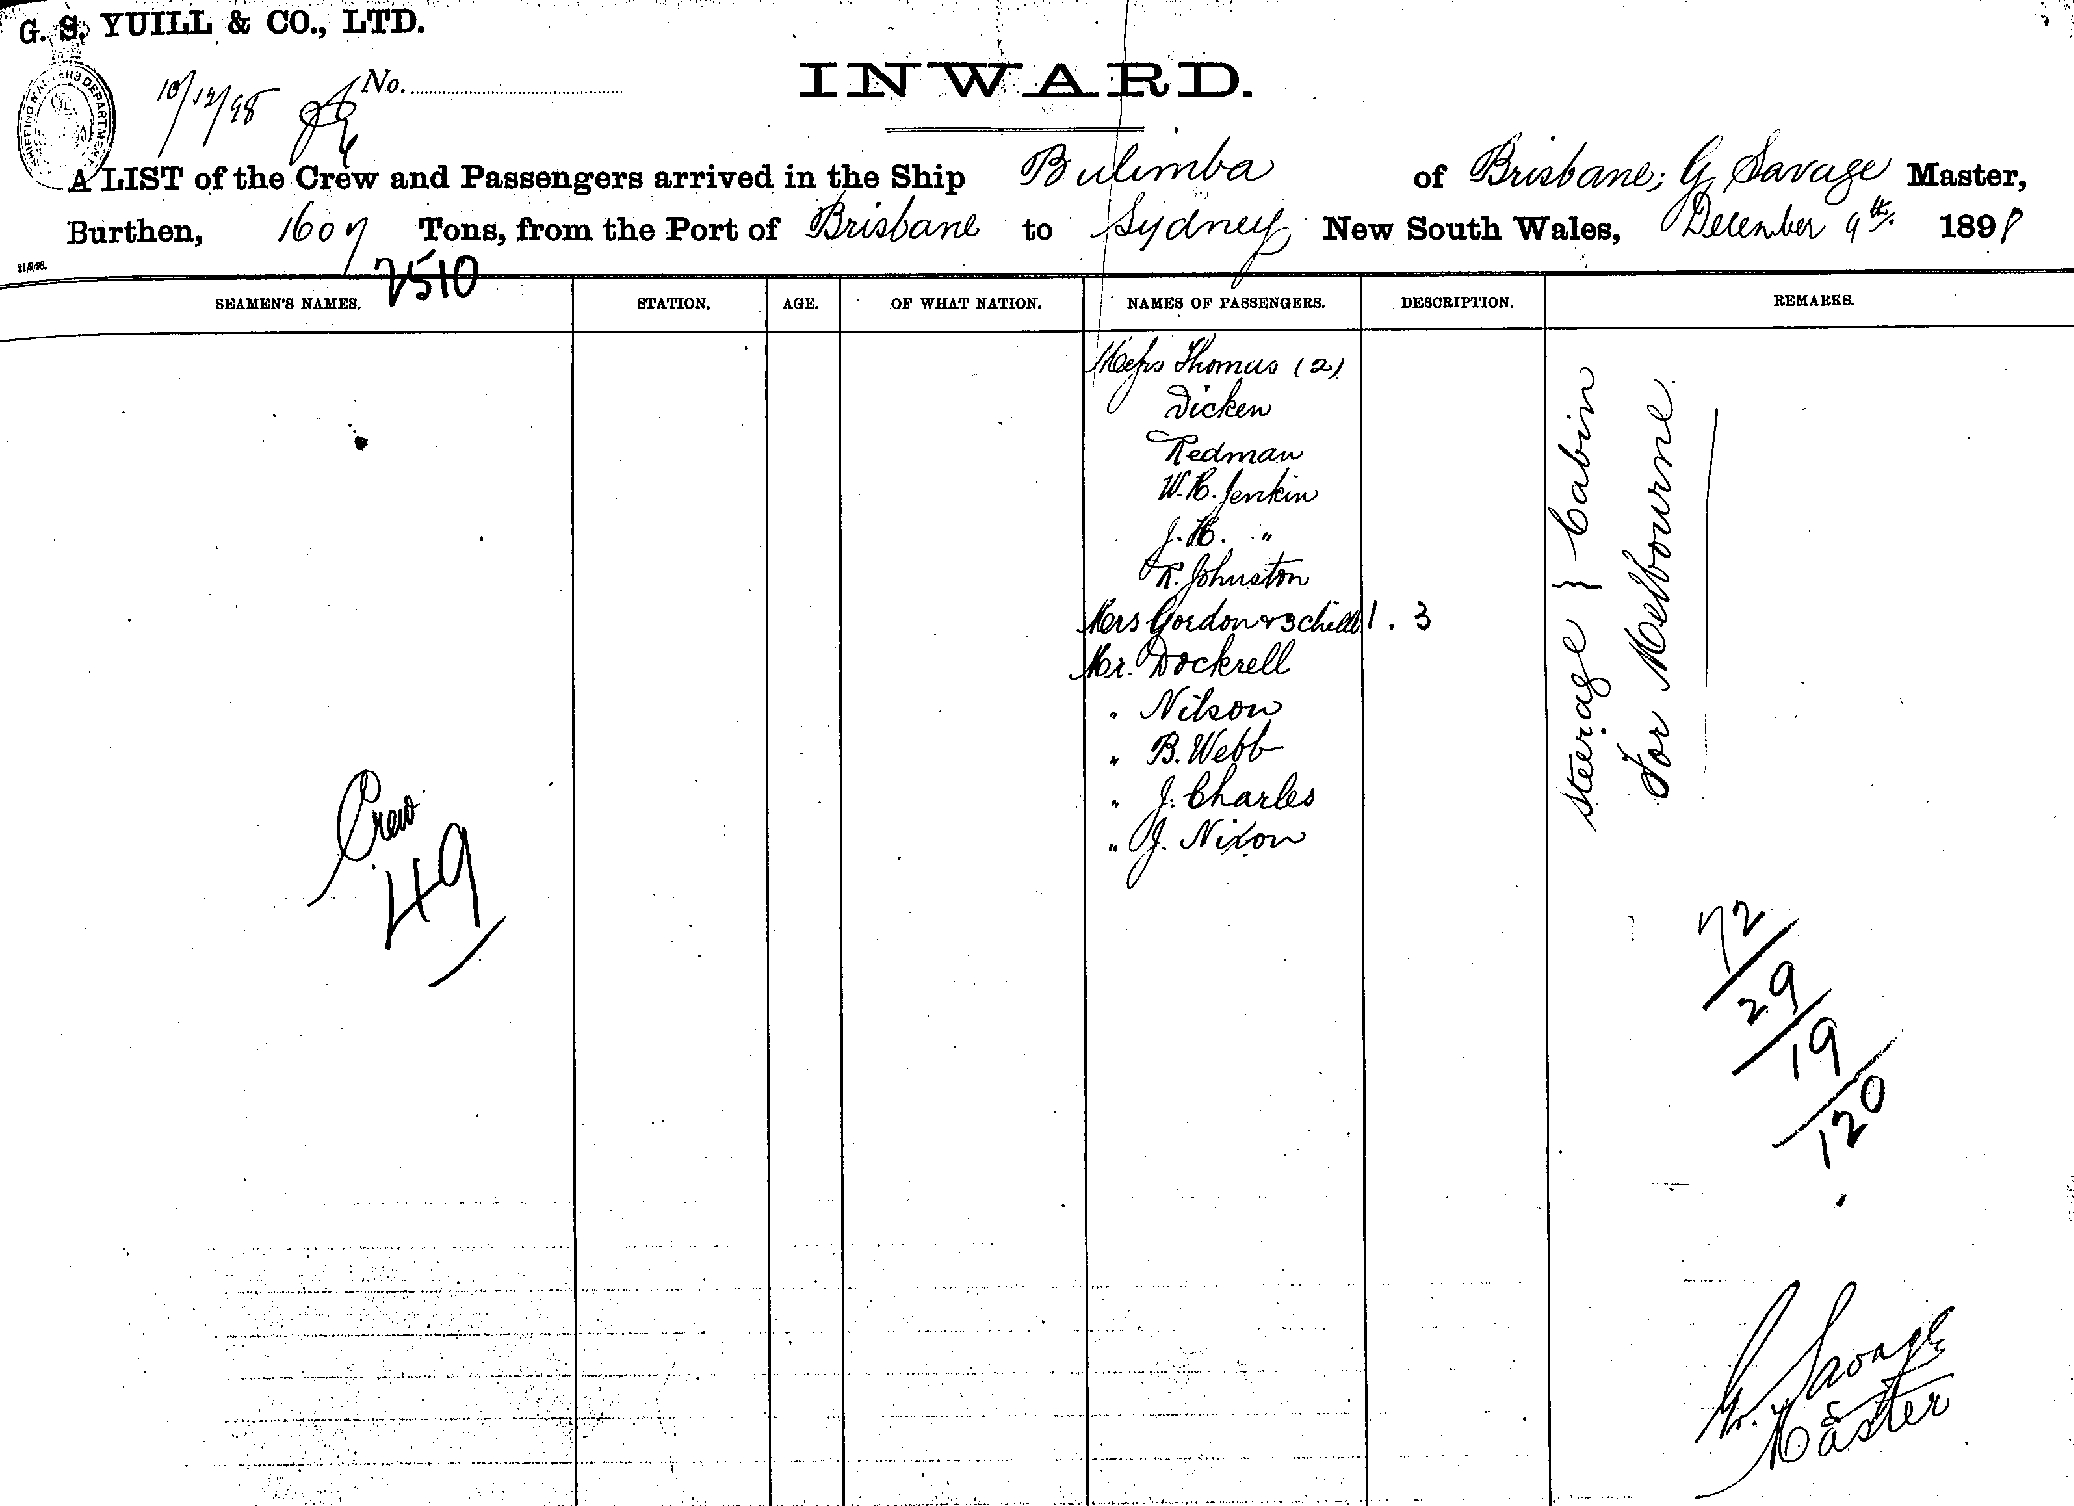 G. S. YUILL & CO., LTD.
10/12/98
No.
INWARD.
A LIST of the Crew and Passengers arrived in the Ship Bulimba of Brisbane; G Savage Master,
Burthen, 1607 Tons, from the Port of Brisbane to Sydney, New South Wales, December 9th. 1898
2510
SEAMEN'S NAMES. STATION. AGE. OF WHAT NATION. NAMES OF PASSENGERS. DESCRIPTION. REMARKS.
Messrs Thomas (2)
Dicken
Redman
W.H. Jenkin
J.H. "
R. Johnston
Mrs Gordon & 3 child 1 . 3
Mr. Dockrell
" Nilson
" B. Webb
" J. Charles
" J. Nixon
steerage } Cabin
For Melbourne.
Crew
49
72
29
19
120
G. Savage
Master